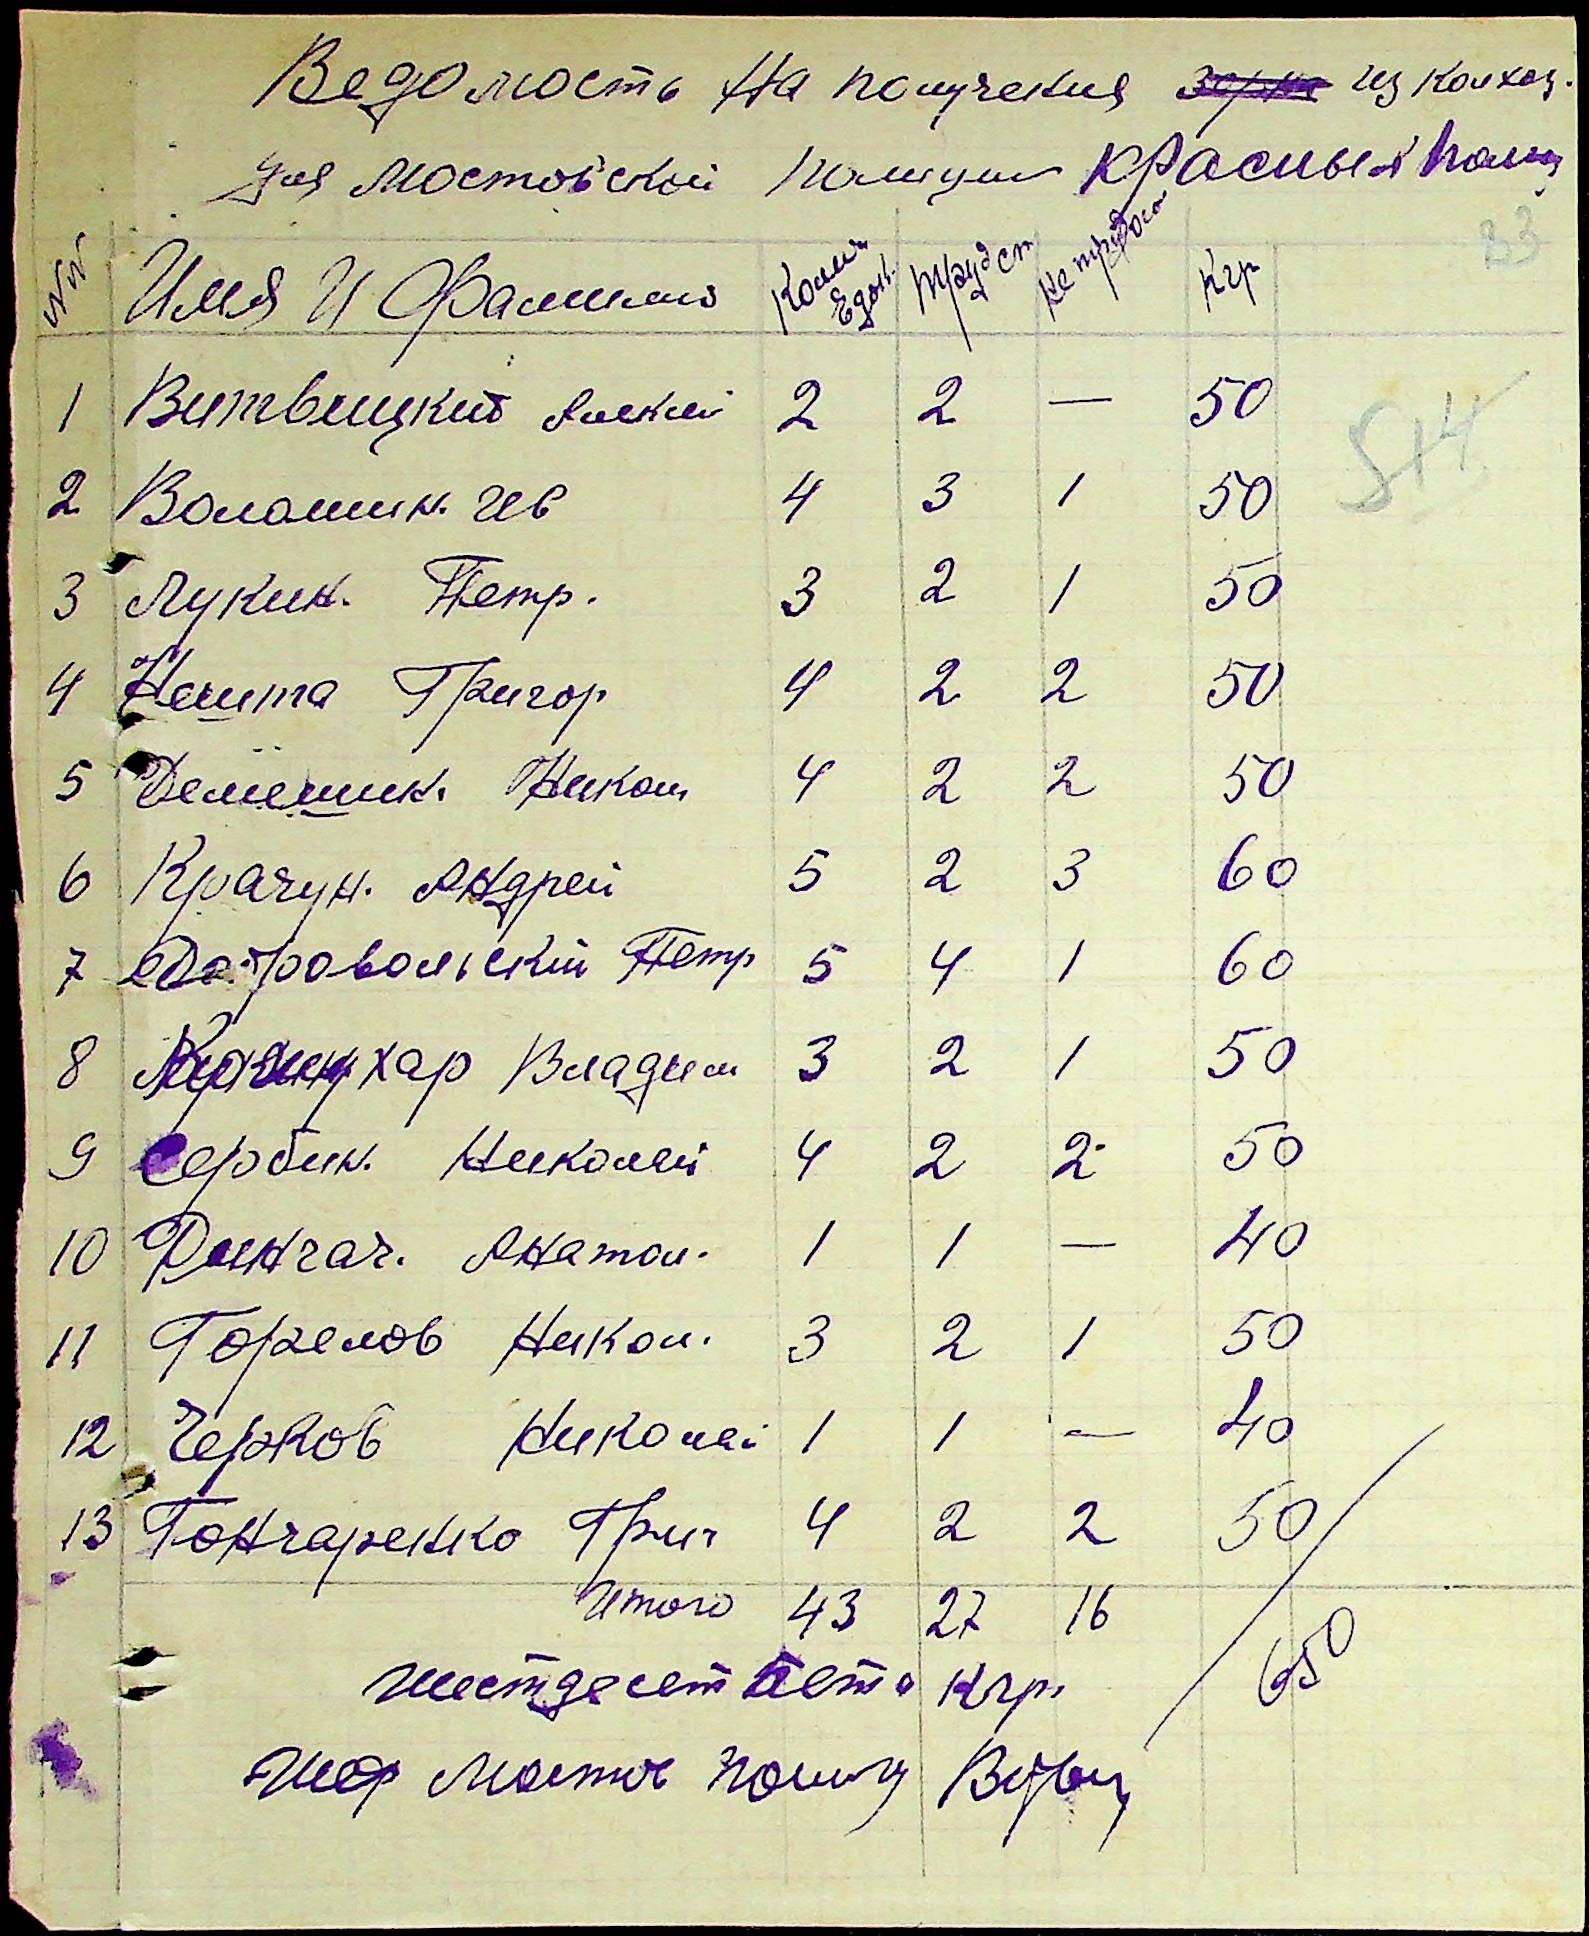 Ведомость На получения зерна из колхоз.
для Мостовской полиции Красный Пахар
83
NN Имя И Фамилию Колич Едок. трудсп не трудосп Кгр
1 Витвицкий Алексей 2 2 — 50
514
2 Волошин. Ив 4 3 1 50
3 Лукин. Петр. 3 2 1 50
4 Никита Григор 4 2 2 50
5 Демешин. Никол 4 2 2 50
6 Крачун. Андрей 5 2 3 60
7 Добровольский Петр 5 4 1 60
8 хар Владим 3 2 1 50
9 Сербин. Николай 4 2 2 50
10 Денгач. Анатол. 1 1 — 40
11 Горелов Никол. 3 2 1 50
12 Черков Николай 1 1 — 40
13 Гончаренко Григ 4 2 2 50
Итого 43 27 16
650
шестдесет Кгр.
Шеф Мостов полиц Витвиц